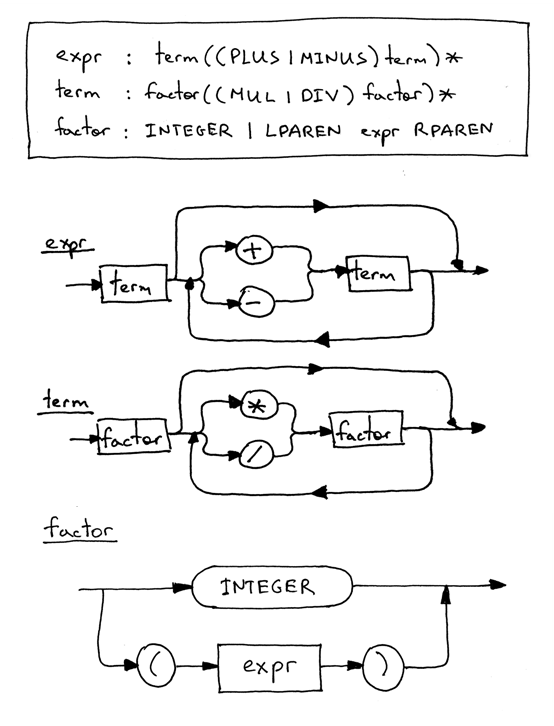 expr : term((PLUS | MINUS) term)*
term : factor((MUL | DIV) factor)*
factor : INTEGER | LPAREN expr RPAREN
expr
+
term
term
-
term
*
factor
factor
/
factor
INTEGER
( expr )